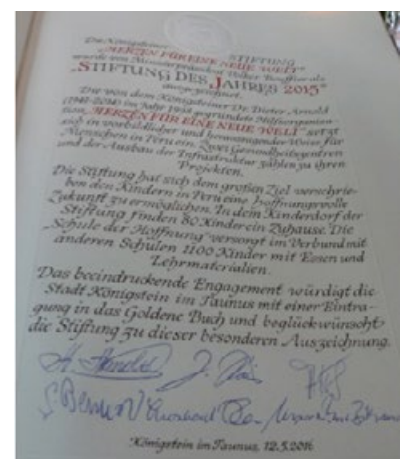 Die Königsteiner STIFTUNG
„HERZEN FÜR EINE NEUE WELT"
wurde von Ministerpräsident Volker Bouffier als
„STIFTUNG DES JAHRES 2015"
ausgezeichnet.
Die von dem Königsteiner Dr. Dieter Arnold
(1941-2014) im Jahre gegründete Hilfsorganisa-
tion „HERZEN FÜR EINE NEUE WELT" setzt
sich in vorbildlicher und herausragender Weise für
Menschen in Peru ein. Zwei Gesundheitszentren
und der Ausbau der Infrastruktur zählen zu ihren
Projekten.
Die Stiftung hat sich dem großen Ziel verschrie-
ben den Kindern in Peru eine hoffnungsvolle
Zukunft zu ermöglichen. In dem Kinderdorf der
Stiftung finden 80 Kinder ein Zuhause. Die
„Schule der Hoffnung" versorgt im Verbund mit
anderen Schulen 1100 Kinder mit Essen und
Lehrmaterialien.
Das beeindruckende Engagement würdigt die
Stadt Königstein im Taunus mit einer Eintra-
gung in das Goldene Buch und beglückwünscht
die Stiftung zu dieser besonderen Auszeichnung.
Königstein im Taunus, 12.5.2016